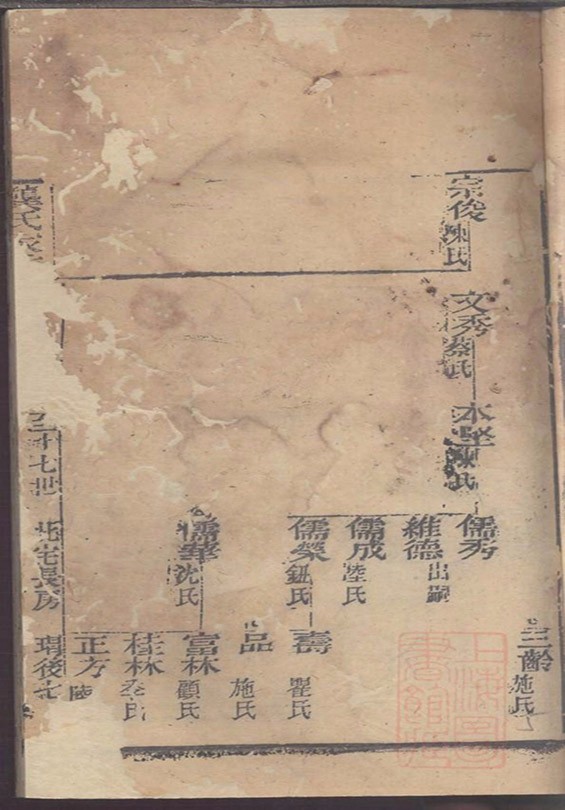 宗俊 陳氏
文秀 蔡氏
本堅 陳氏
儒秀
維德 出嗣
儒成 陸氏
儒榮 鈕氏
儒華 沈氏
三齡 施氏
壽 瞿氏
品 施氏
富林 顧氏
桂林 蔡氏
正方 陸
氏
三十七世 北宅長房